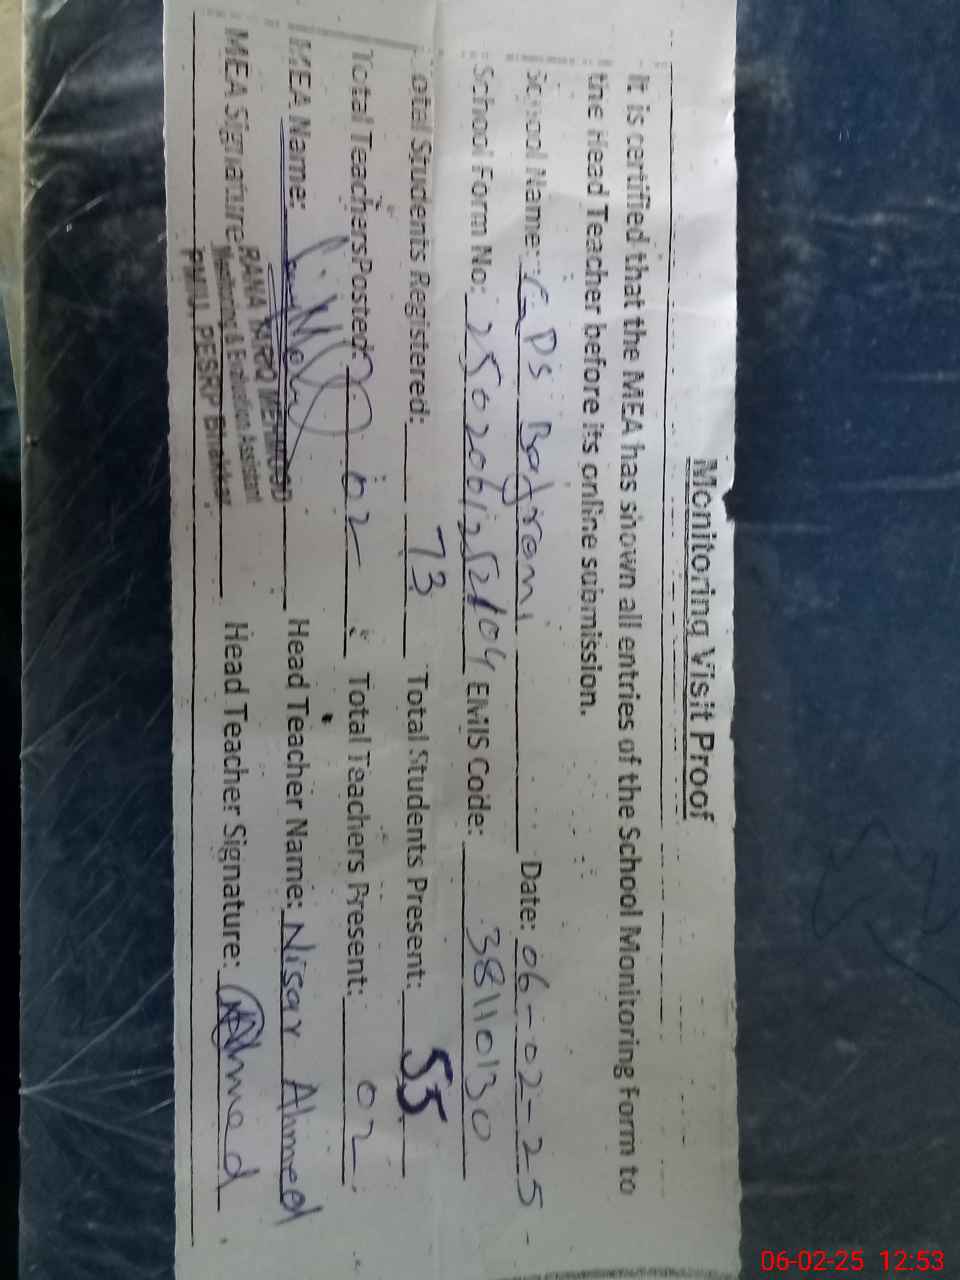 Monitoring Visit Proof
It is certified that the MEA has shown all entries of the School Monitoring Form to
the Head Teacher before its online submission.
School Name: GPS Date: 06-02-25
School Form No: EMIS Code: 38110130
Total Students Registered: 73 Total Students Present: 55
Total Teachers Posted: 02 Total Teachers Present: 02
MEA Name: Head Teacher Name: Nisar Ahmed
MEA Signature: Head Teacher Signature: Ahmed
RANA TARIQ MEHMOOD
Monitoring & Evaluation Assistant
PMIU PESRP Bhakkar
06-02-25 12:53